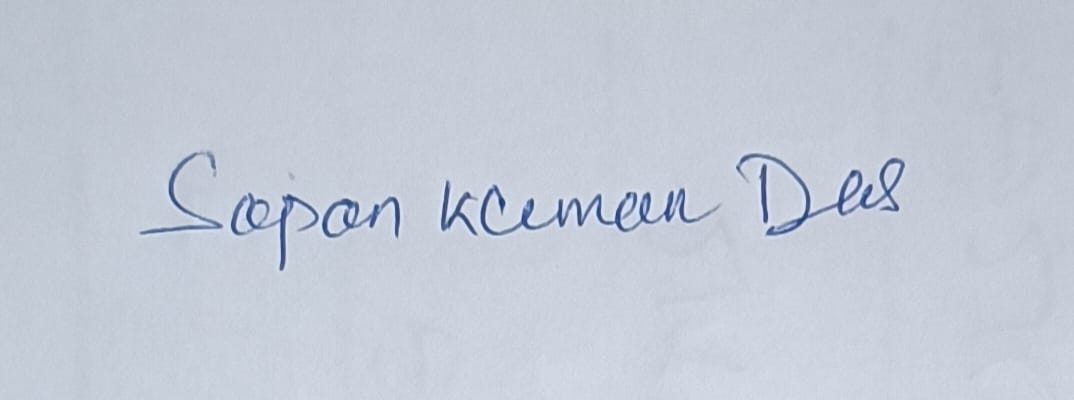 Sapan kumar Das